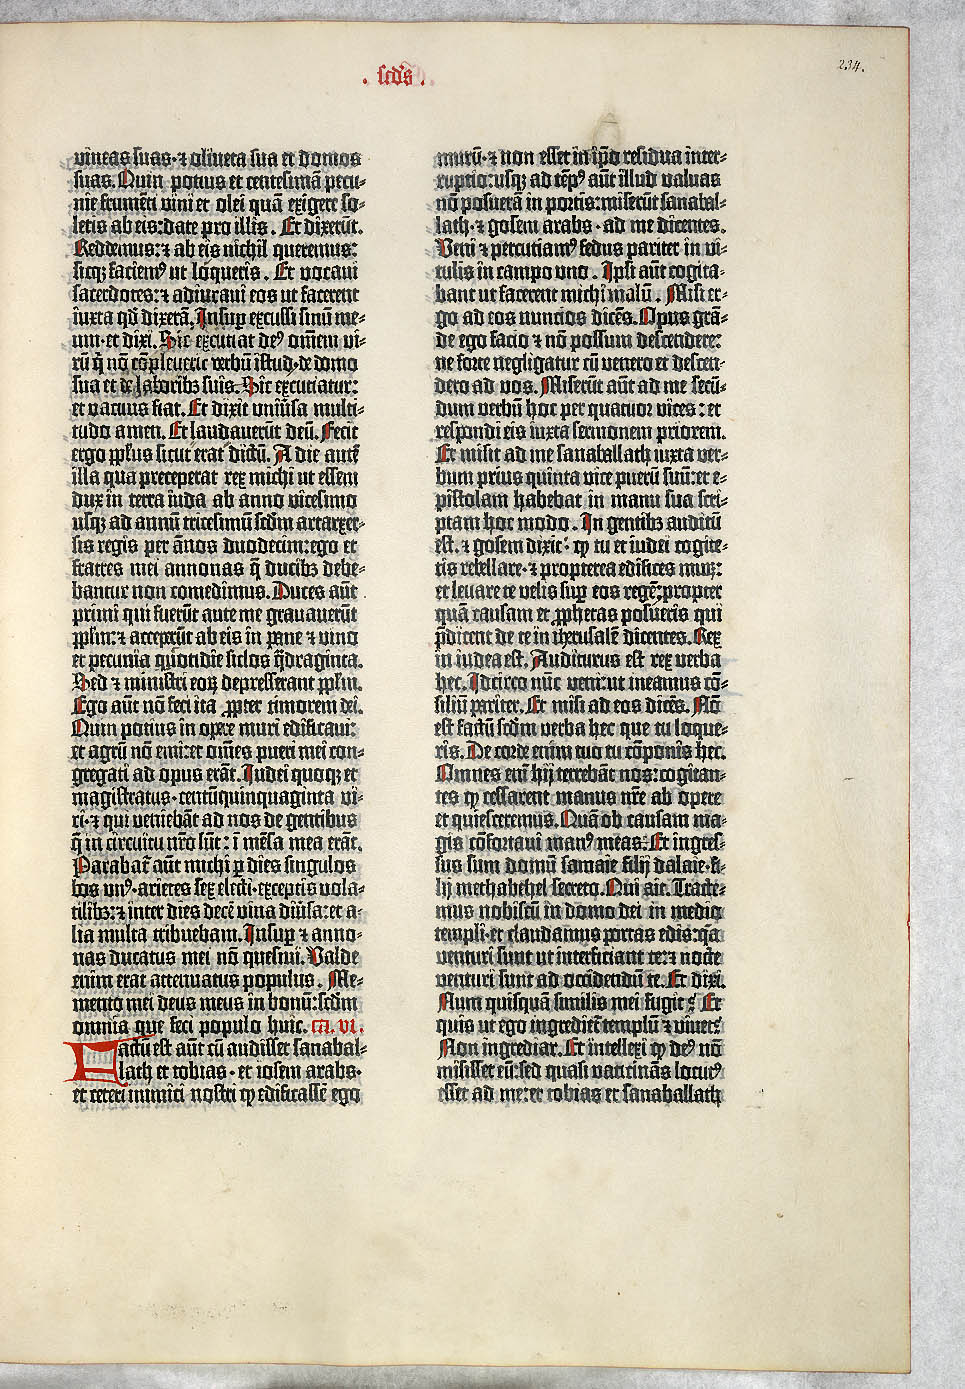 . scd's .
234.
vineas suas · et oliveta sua et domos
suas. Quin potius et centesimā pecu-
nie frumēti vini et olei quā exigere so-
letis ab eis: date pro illis. Et dixerūt.
Reddemus: et ab eis nichil queremus:
sicqꝫ faciemꝰ ut loqueris. Et vocavi
sacerdotes: et adiuravi eos ut facerent
iuxta qđ dixerā. Insuꝑ excussi sinū me-
um · et dixi. Sic excutiat deꝰ omēm vi-
rū q̄ nō cōpleverit verbū istud · de domo
sua et de laboribꝫ suis. Sic excutiatur:
et vacuus fiat. Et dixit univ̄sa multi-
tudo amen. Et laudaverūt deū. Fecit
ergo pp̄lus sicut erat dictū. A die autē
illa qua preceperat rex michi ut essem
dux in terra iuda ab anno vicesimo
usqꝫ ad annū tricesimū scd̄m artaxer-
sis regis per ānos duodecim: ego et
fratres mei annonas q̄ ducibꝫ debe-
bantur non comedimus. Duces aūt
primi qui fuerūt ante me gravaverūt
pp̄lm: et acceperūt ab eis in pane et vino
et pecunia quotidie siclos q̄draginta.
Sed et ministri eoꝝ depresserant pp̄lm.
Ego aūt nō feci ita ꝓpter timorem dei.
Quin potius in opere muri edificavi:
et agrū nō emi: et om̄es pueri mei con-
gregati ad opus erāt. Iudei quoqꝫ et
magistratus · centūquinquaginta vi-
ri · et qui veniebāt ad nos de gentibus
q̄ in circuitu nr̄o sūt: ī mēsa mea erāt.
Parabat᷑ aūt michi ꝑ dies singulos
bos unꝰ · arietes sex electi · exceptis vola-
tilibꝫ: et inter dies decē vina div̄sa: et a-
lia multa tribuebam. Insuꝑ et anno-
nas ducatus mei nō quesivi. Valde
enim erat attenuatus populus. Me-
mento mei deus meus in bonū: scd̄m
omnia que feci populo huic. ca. vi.
Factū est aūt cū audisset sanabal-
lath et tobias · et iosem arabs ·
et ceteri inimici nostri ꝙ edificassē ego
murū · et non esset in ip̄o residua inter-
ruptio: usqꝫ ad tēpꝰ aūt illud valvas
nō posuerā in portis: miserūt sanabal-
lath · et gosem arabs · ad me dicentes.
Veni et percutiamꝰ fedus pariter in vi-
tulis in campo uno. Ipsi aūt cogita-
bant ut facerent michi malū. Misi er-
go ad eos nuncios dicēs. Opus grā-
de ego facio et nō possum descendere:
ne forte negligatur cū venero et descen-
dero ad vos. Miserūt aūt ad me secū-
dum verbū hoc per quatuor vices: et
respondi eis iuxta sermonem priorem.
Et misit ad me sanaballath iuxta ver-
bum prius quinta vice puerū suū: et e-
pistolam habebat in manu sua scri-
ptam hoc modo. In gentibꝫ auditū
est · et gosem dixit: ꝙ tu et iudei cogite-
tis rebellare · et propterea edifices murꝫ:
et levare te velis suꝑ eos regē: propter
quā causam et ꝓphetas posueris qui
p̄dicent de te in ih̄erusalē dicentes. Rex
in iudea est. Auditurus est rex verba
hec. Idcirco nūc veni: ut ineamus cō-
siliū pariter. Et misi ad eos dicēs. Nō
est factū scd̄m verba hec que tu loque-
ris. De corde enim tuo tu cōponis hec.
Omnes eni hij terrebāt nos: cogitan-
tes ꝙ cessarent manus nr̄e ab opere
et quiesceremus. Quā ob causam ma-
gis cōfortavi manꝰ meas: Et ingres-
sus sum domū samaie filij dalaie · fi-
lij methabehel secreto. Qui ait. Tracte-
mus nobiscū in domo dei in medio
templi · et claudamus portas edis: q̄a
venturi sunt ut interficiant te: et nocte
venturi sunt ad occidendū te. Et dixi.
Num quisquā similis mei fugit? Et
quis ut ego ingrediet᷑ templū et vivet?
Non ingrediar. Et intellexi ꝙ deꝰ nō
misisset eū: sed quasi vaticināns locutꝰ
esset ad me: et tobias et sanaballath